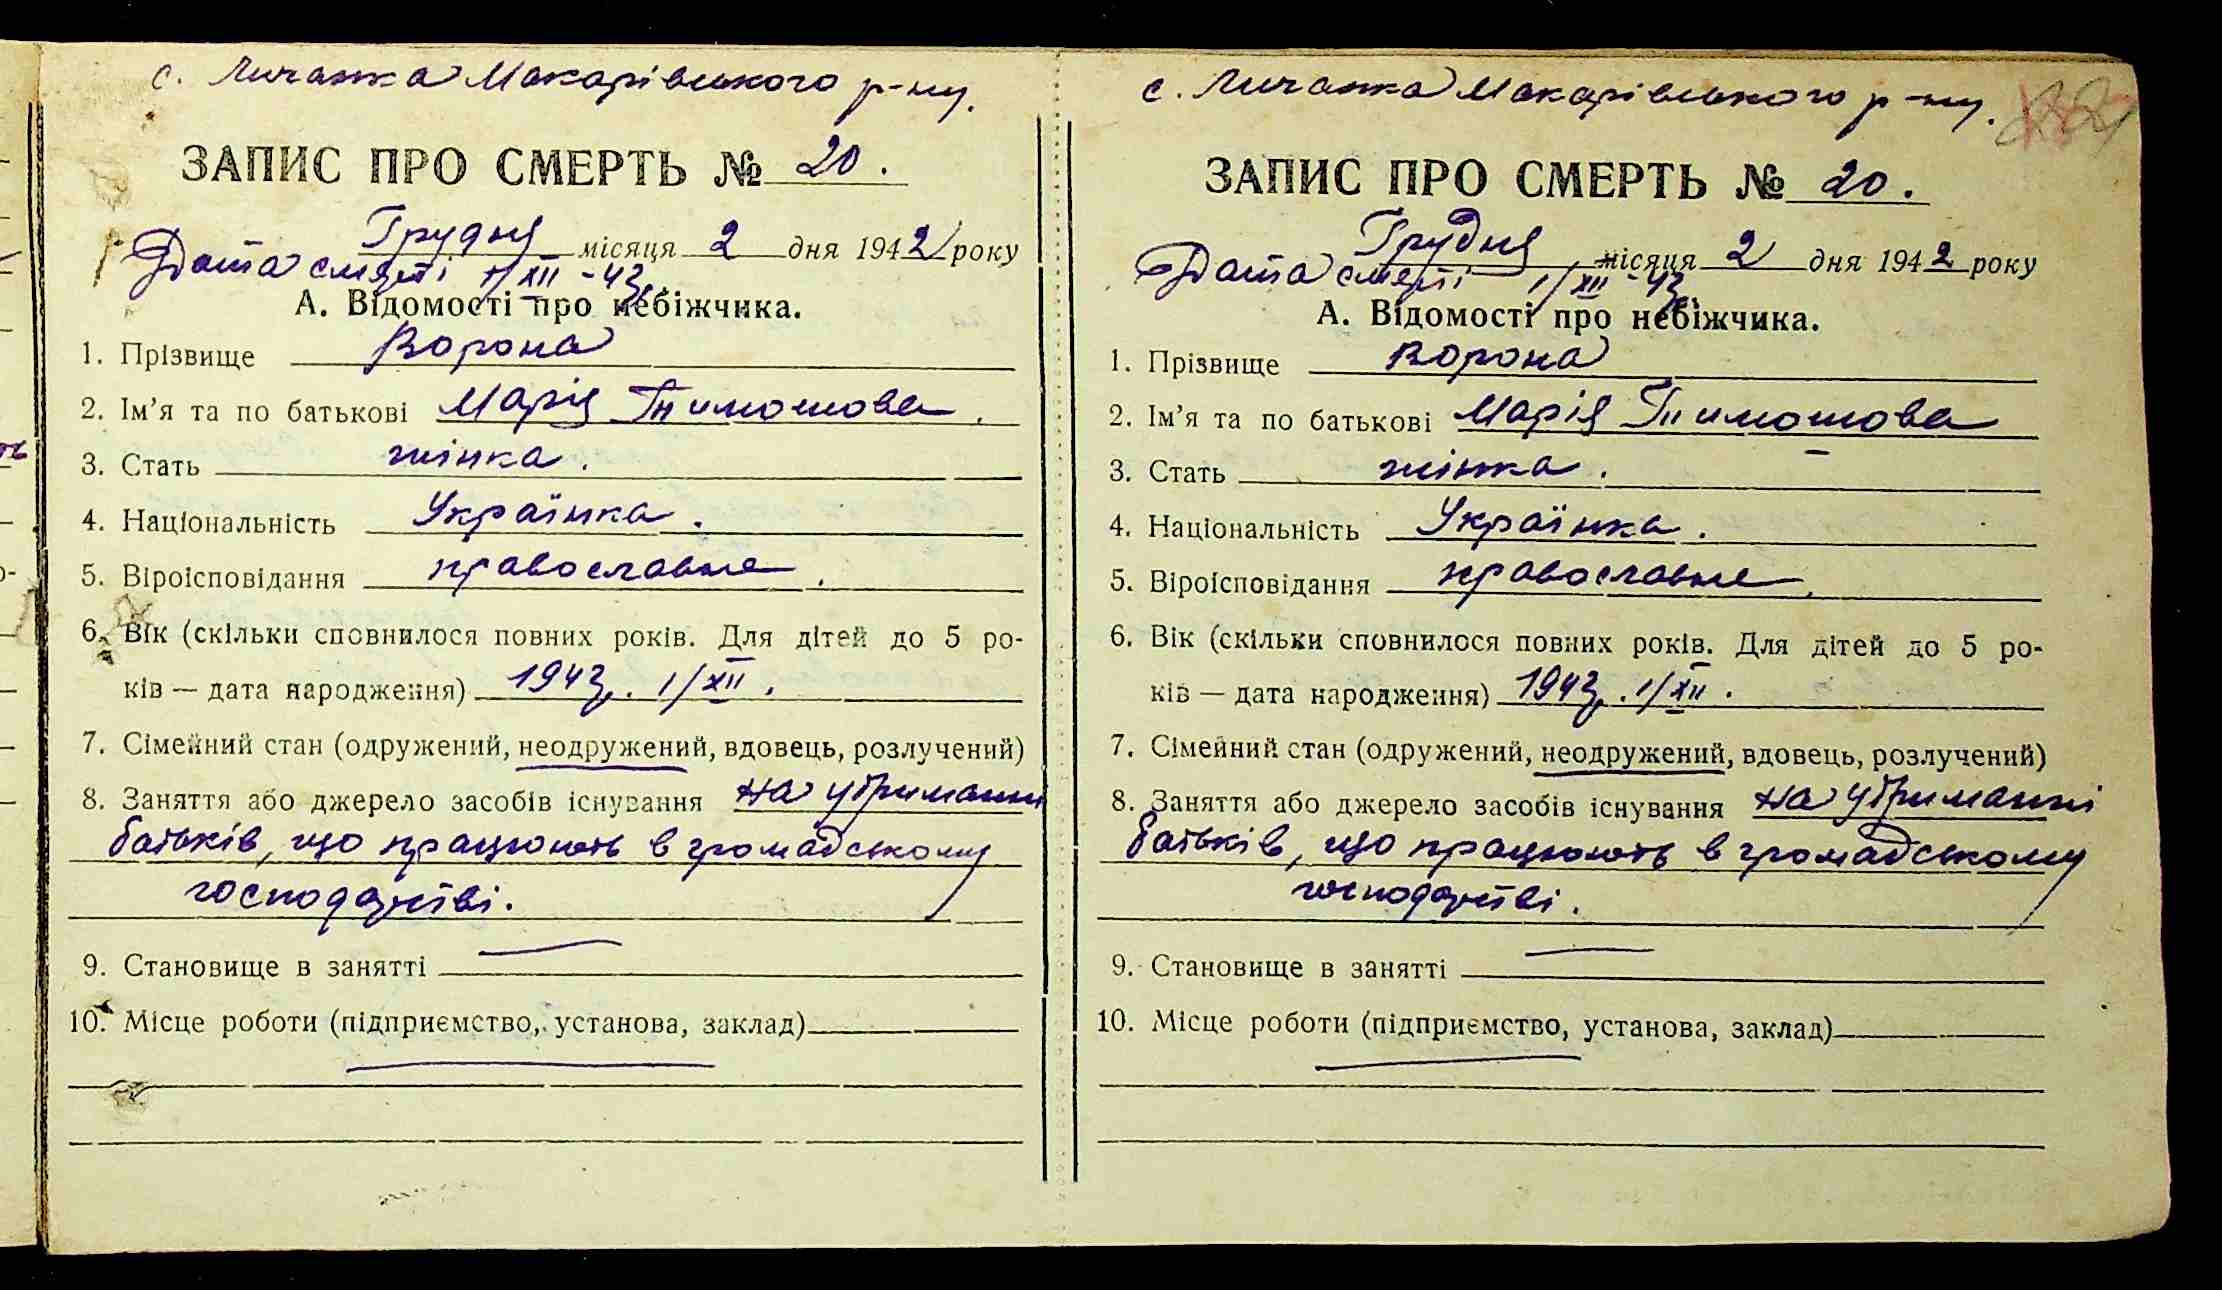 с. Личанка Макарівського р-ну.
ЗАПИС ПРО СМЕРТЬ № 20.
Грудня місяця 2 дня 1942 року
Дата смерті 1/XII -42
А. Відомості про небіжчика.
1. Прізвище Ворона
2. Ім'я та по батькові Марія Тимошова.
3. Стать жінка.
4. Національність Українка.
5. Віроісповідання православне.
6. Вік (скільки сповнилося повних років. Для дітей до 5 ро-
ків — дата народження) 1942. 1/XII.
7. Сімейний стан (одружений, неодружений, вдовець, розлучений)
8. Заняття або джерело засобів існування на утриманні
батьків, що працюють в громадському
господарстві.
9. Становище в занятті
10. Місце роботи (підприємство, установа, заклад)
с. Личанка Макарівського р-ну.
ЗАПИС ПРО СМЕРТЬ № 20.
Грудня місяця 2 дня 1942 року
Дата смерті 1/XII -42
А. Відомості про небіжчика.
1. Прізвище Ворона
2. Ім'я та по батькові Марія Тимошова
3. Стать жінка.
4. Національність Українка.
5. Віроісповідання православне.
6. Вік (скільки сповнилося повних років. Для дітей до 5 ро-
ків — дата народження) 1942. 1/XII.
7. Сімейний стан (одружений, неодружений, вдовець, розлучений)
8. Заняття або джерело засобів існування на утриманні
батьків, що працюють в громадському
господарстві.
9. Становище в занятті
10. Місце роботи (підприємство, установа, заклад)